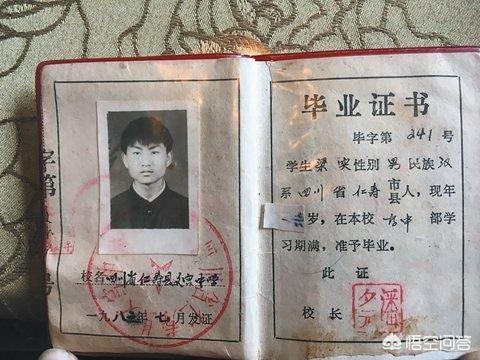 字第
号
校名 四川省仁寿县文宫中学
一九八二年七月发证
毕业证书
毕字第 241 号
学生梁 性别 男 民族 汉
系 四川 省 仁寿 市县 人，现年
岁，在本校 高中 部学
习期满，准予毕业。
此证
校长
悟空问答